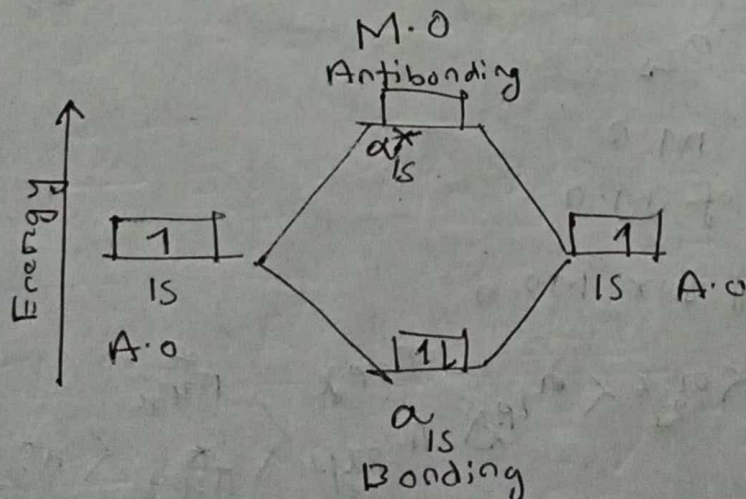 M.O
Antibonding
α*
1s
Energy
1
1s
A.O
1
1s
A.O
1L
α
1s
Bonding